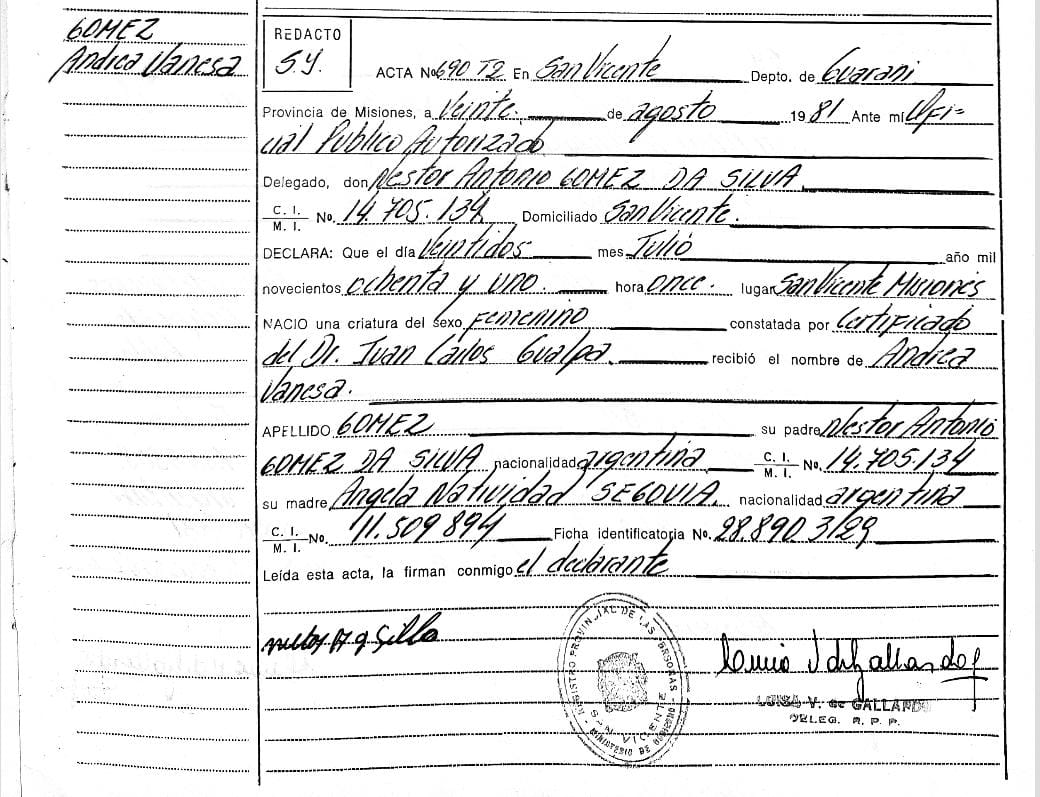 GOMEZ
Andrea Vanesa
REDACTO
S.Y.
ACTA No 690 T2 En San Vicente Depto. de Guarani
Provincia de Misiones, a Veinte. de agosto 1981 Ante mi Ofi=
cial Público Autorizado
Delegado, don Nestor Antonio GOMEZ DA SILVA
C. I.
M. I. No. 14.705.134 Domiciliado San Vicente.
DECLARA: Que el día Veintidos mes Julio año mil
novecientos ochenta y uno. hora once. lugar San Vicente Misiones
NACIO una criatura del sexo Femenino constatada por Certificado
del Dr. Juan Carlos Gualpa. recibió el nombre de Andrea
Vanesa.
APELLIDO GOMEZ su padre Nestor Antonio
GOMEZ DA SILVA nacionalidad argentina C. I.
M. I. No. 14.705.134
su madre Angela Natividad SEGOVIA. nacionalidad argentina
C. I.
M. I. No. 11.509.894 Ficha identificatoria No. 28.890 3/29
Leída esta acta, la firman conmigo el declarante
REGISTRO PROVINCIAL DE LAS PERSONAS
SAN VICENTE
MINISTERIO DE GOBIERNO
LUISA V. de GALLARDO
DELEG. R. P. P.